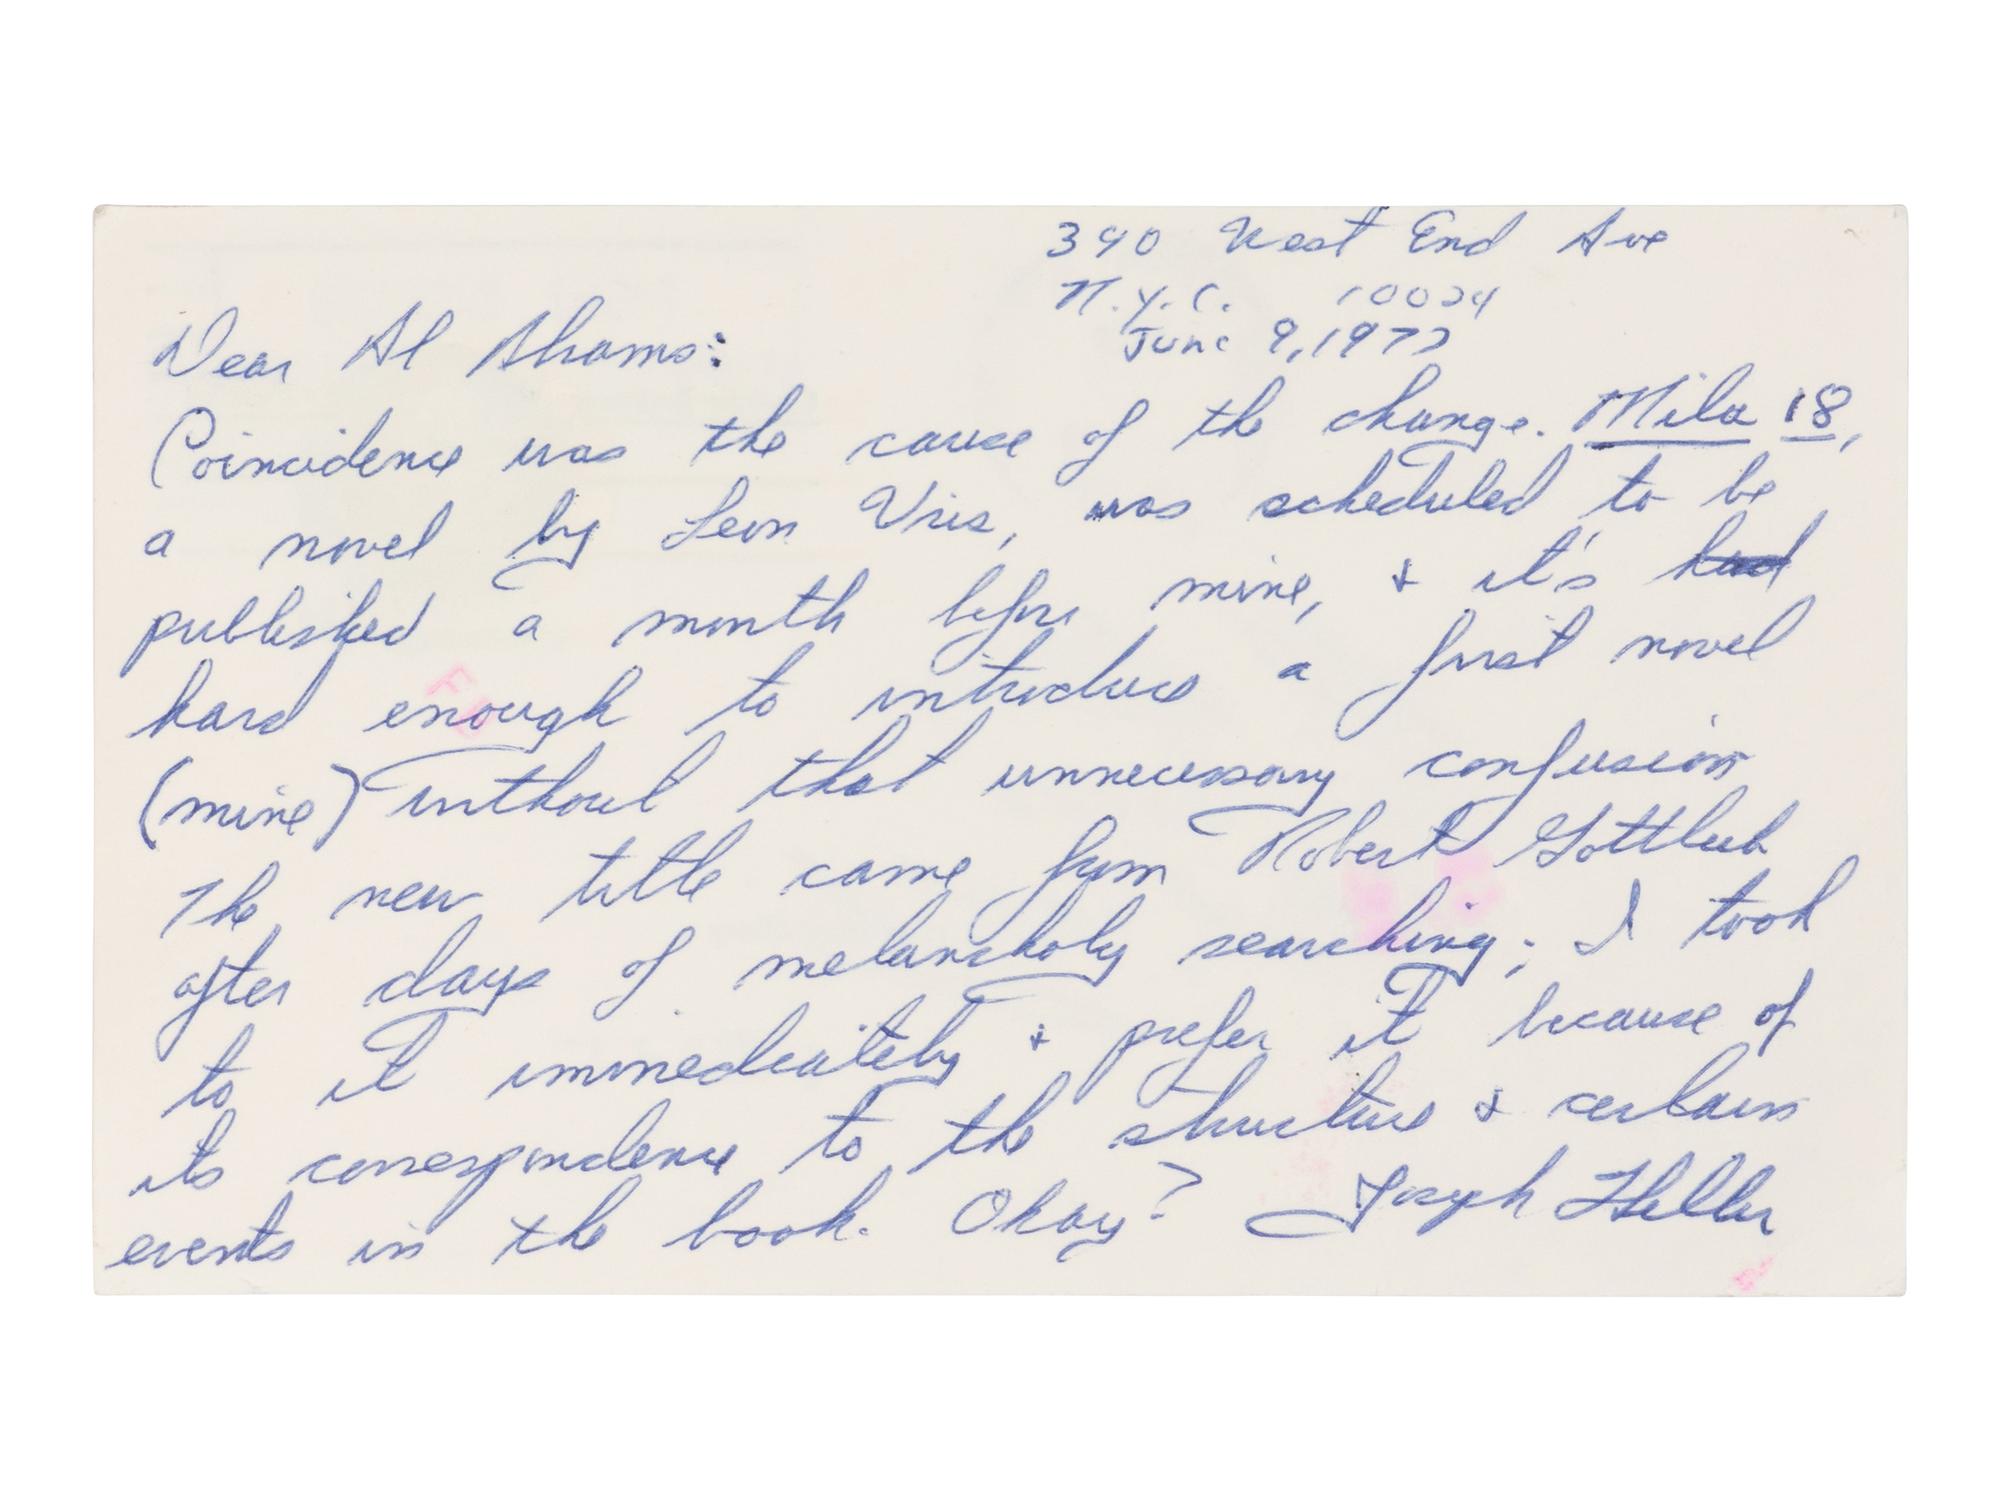 390 West End Ave
N.Y.C. 10024
June 9, 1977
Dear Al Abrams:
Coincidence was the cause of the change. Mila 18,
a novel by Leon Uris, was scheduled to be
published a month before mine, & it's had
hard enough to introduce a first novel
(mine) without that unnecessary confusion
The new title came from Robert Gottlieb
after days of melancholy searching; I took
to it immediately & prefer it because of
its correspondence to the structure & certain
events in the book. Okay? Joseph Heller